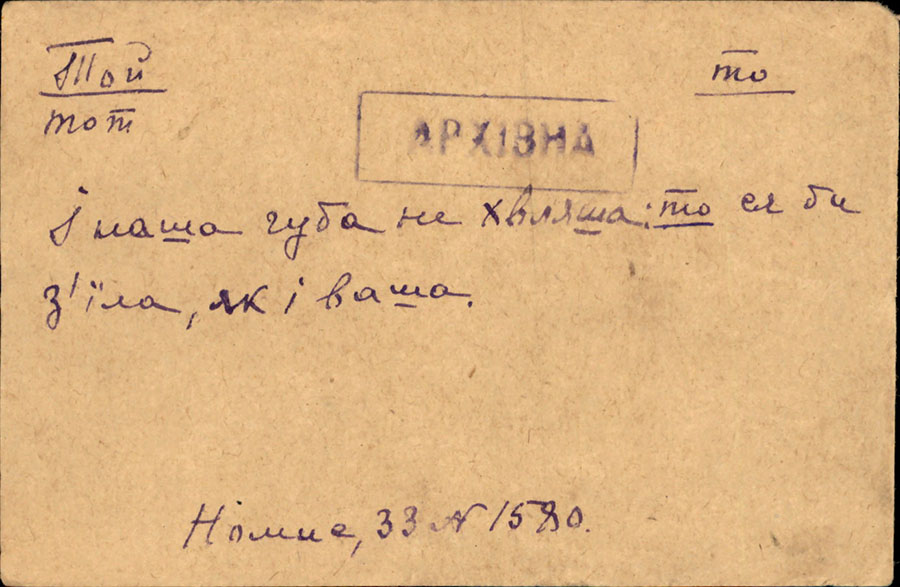 Той то
тот
АРХІВНА
І наша губа не хвляша: то би
з'їла, як і ваша.
Номис, 33 N 1580.